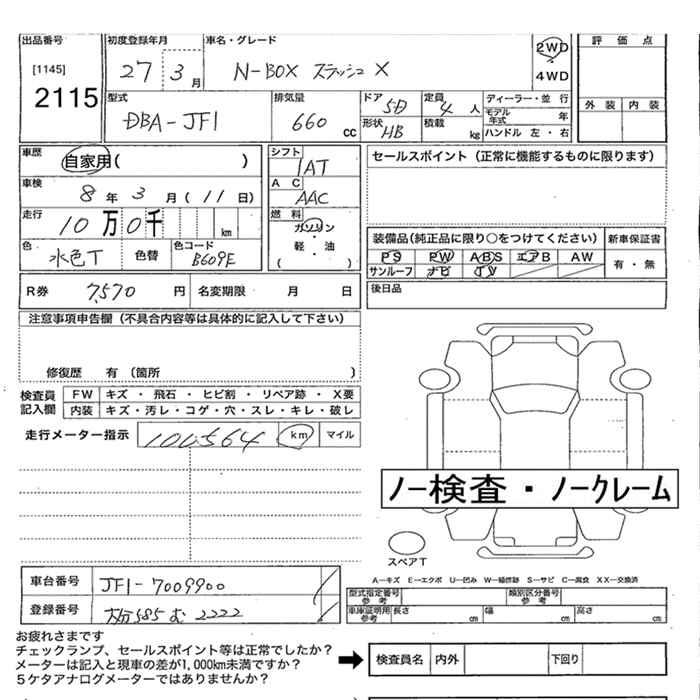 出品番号
[1145]
2115
初度登録年月
27 3月
車名・グレード
N-BOX スラッシュ X
2WD
・
4WD
評価点
外装 内装
型式
DBA-JF1
排気量
660 cc
ドア 5D
形状 HB
定員 4 人
積載 kg
ディーラー・並行
モデル年式 年
ハンドル 左・右
車歴
自家用( )
車検
8年 3月(11日)
走行
10万0千 km
色
水色T
色替
色コード
B609E
シフト
IAT
AC
AAC
燃料
ガソリン
・
軽・油
( )
セールスポイント(正常に機能するものに限ります)
装備品(純正品に限り○をつけてください)
新車保証書
PS PW ABS エアB AW
サンルーフ ナビ TV
有・無
後日品
R券 7570 円
名変期限 月 日
注意事項申告欄(不具合内容等は具体的に記入して下さい)
修復歴 有(箇所 )
検査員記入欄
FW キズ・飛石・ヒビ割・リペア跡・X要
内装 キズ・汚レ・コゲ・穴・スレ・キレ・破レ
走行メーター指示 100564 km マイル
ノー検査・ノークレーム
スペアT
A−キズ E−エクボ U−凹み W−補修跡 S−サビ C−腐食 XX−交換済
車台番号 JF1-7009900
登録番号 大分585 む 2222
型式指定番号 参考
類別区分番号 参考
車庫証明用 参考
長さ cm 幅 cm 高さ cm
お疲れさまです
チェックランプ、セールスポイント等は正常でしたか?
メーターは記入と現車の差が1,000km未満ですか?
5ケタアナログメーターではありませんか?
検査員名 内外 下回り